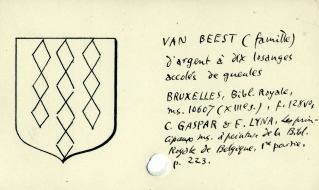 VAN BEEST (famille)
d'argent à dix losanges
accolés de gueules
BRUXELLES, Bibl. Royale,
ms. 10607 (XIIIe s.), f. 125vo,
C. GASPAR & F. LYNA, Les prin-
cipaux ms. à peinture de la Bibl.
Royale de Belgique, 1re partie,
p. 223.